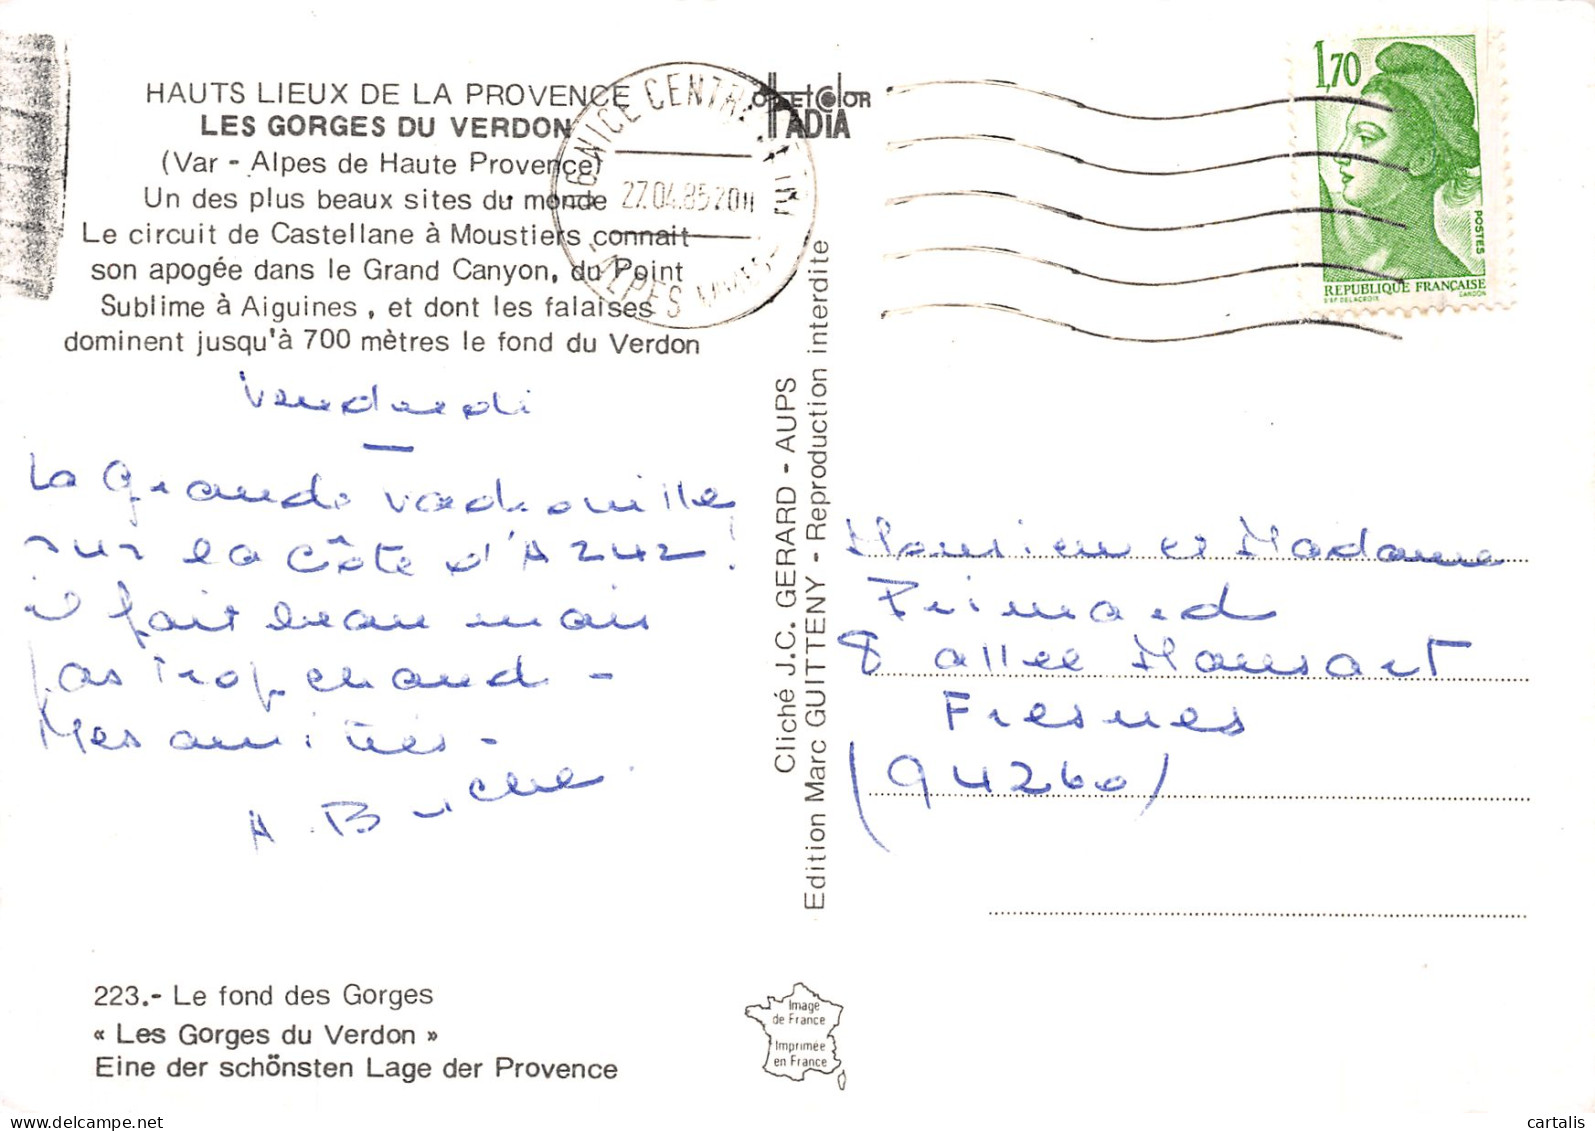 HAUTS LIEUX DE LA PROVENCE
LES GORGES DU VERDON
(Var - Alpes de Haute Provence)
Un des plus beaux sites du monde
Le circuit de Castellane à Moustiers connait
son apogée dans le Grand Canyon, du Point
Sublime à Aiguines, et dont les falaises
dominent jusqu'à 700 mètres le fond du Verdon
NICE CENTRE
27.04.85 20H
ALPES
OffsetColor
ADIA
1,70
POSTES
REPUBLIQUE FRANÇAISE
D'EP DELACROIX GANDON
Vendredi
La Grande vadrouille
sur la Côte d'AZUR !
il fait beau mais
pas trop chaud -
Mes amitiés -
A.
Cliché J.C. GERARD - AUPS
Edition Marc GUITTENY - Reproduction interdite
Monsieur et Madame
Primard
8 allée Mansart
Fresnes
(94260)
223.- Le fond des Gorges
« Les Gorges du Verdon »
Eine der schönsten Lage der Provence
Image
de France
Imprimée
en France
delcampe.net
cartalis